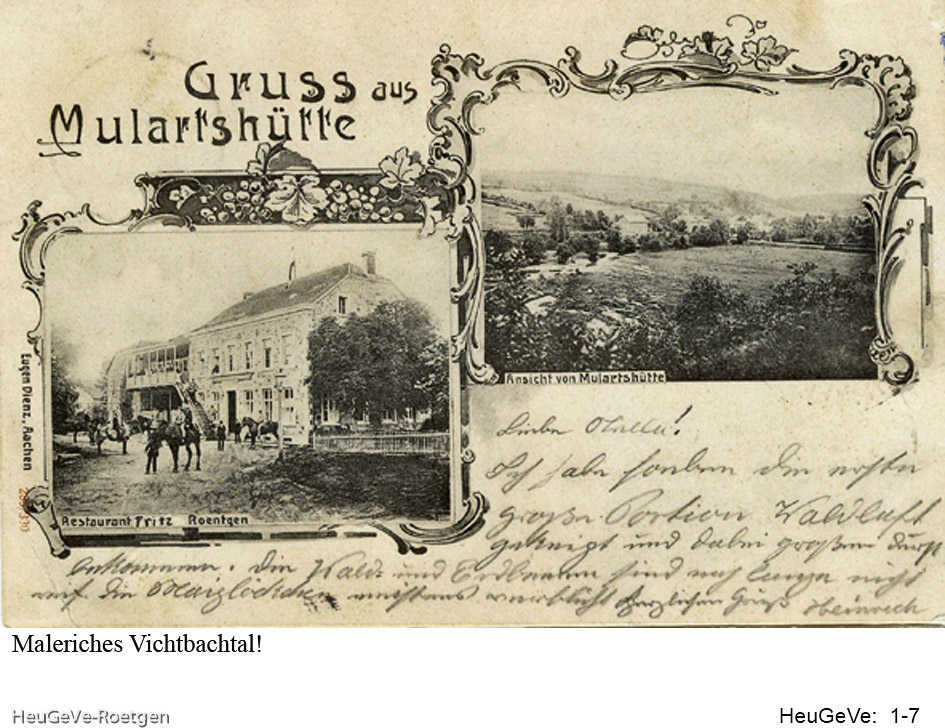 Gruss aus
Mulartshütte
Ansicht von Mulartshütte
Eugen Dienz, Aachen
Restaurant Fritz Roentgen
Liebe
Ich habe soeben die erste
große Portion Waldluft
gekneipt und dabei großen Durst
bekommen. Die Wald- und Erdbeeren sind noch lange nicht
auf die Maiglöckchen meistens verblüht Herzlichen Gruß Heinrich
Maleriches Vichtbachtal!
HeuGeVe-Roetgen
HeuGeVe: 1-7